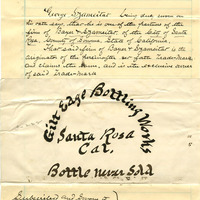 George Szameitat being duly sworn on
his oath says, that he is one of the partners of the
firm of Bayer & Szameitat, of the City of Santa
Rosa, County of Sonoma, State of California.
That said firm of Bayer & Szameitat is the
originator of the hereinafter set forth Trade-Mark
and claims the same, and is the exclusive owner
of said Trade-Mark
Gilt Edge Bottling Works
Santa Rosa
Cal.
Bottle never Sold
Subscribed and Sworn to